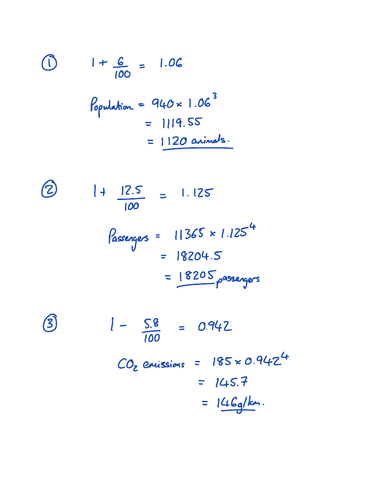 ① 1 + 6/100 = 1.06
Population = 940 × 1.06³
= 1119.55
= 1120 animals.
② 1 + 12.5/100 = 1.125
Passengers = 11365 × 1.125⁴
= 18204.5
= 18205 passengers
③ 1 - 5.8/100 = 0.942
CO₂ emissions = 185 × 0.942⁴
= 145.7
= 146g/km.